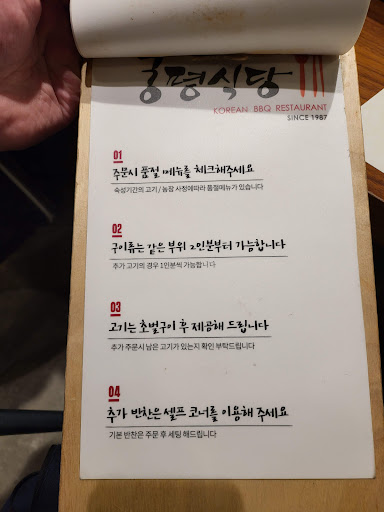 홍평식당
KOREAN BBQ RESTAURANT
SINCE 1987
01
주문시 품절 메뉴를 체크해주세요
숙성기간의 고기 / 농장 사정에따라 품절메뉴가 있습니다
02
구이류는 같은 부위 2인분부터 가능합니다
추가 고기의 경우 1인분씩 가능합니다
03
고기는 초벌구이 후 제공해 드립니다
추가 주문시 남은 고기가 있는지 확인 부탁드립니다
04
추가 반찬은 셀프 코너를 이용해 주세요
기본 반찬은 주문 후 세팅 해드립니다